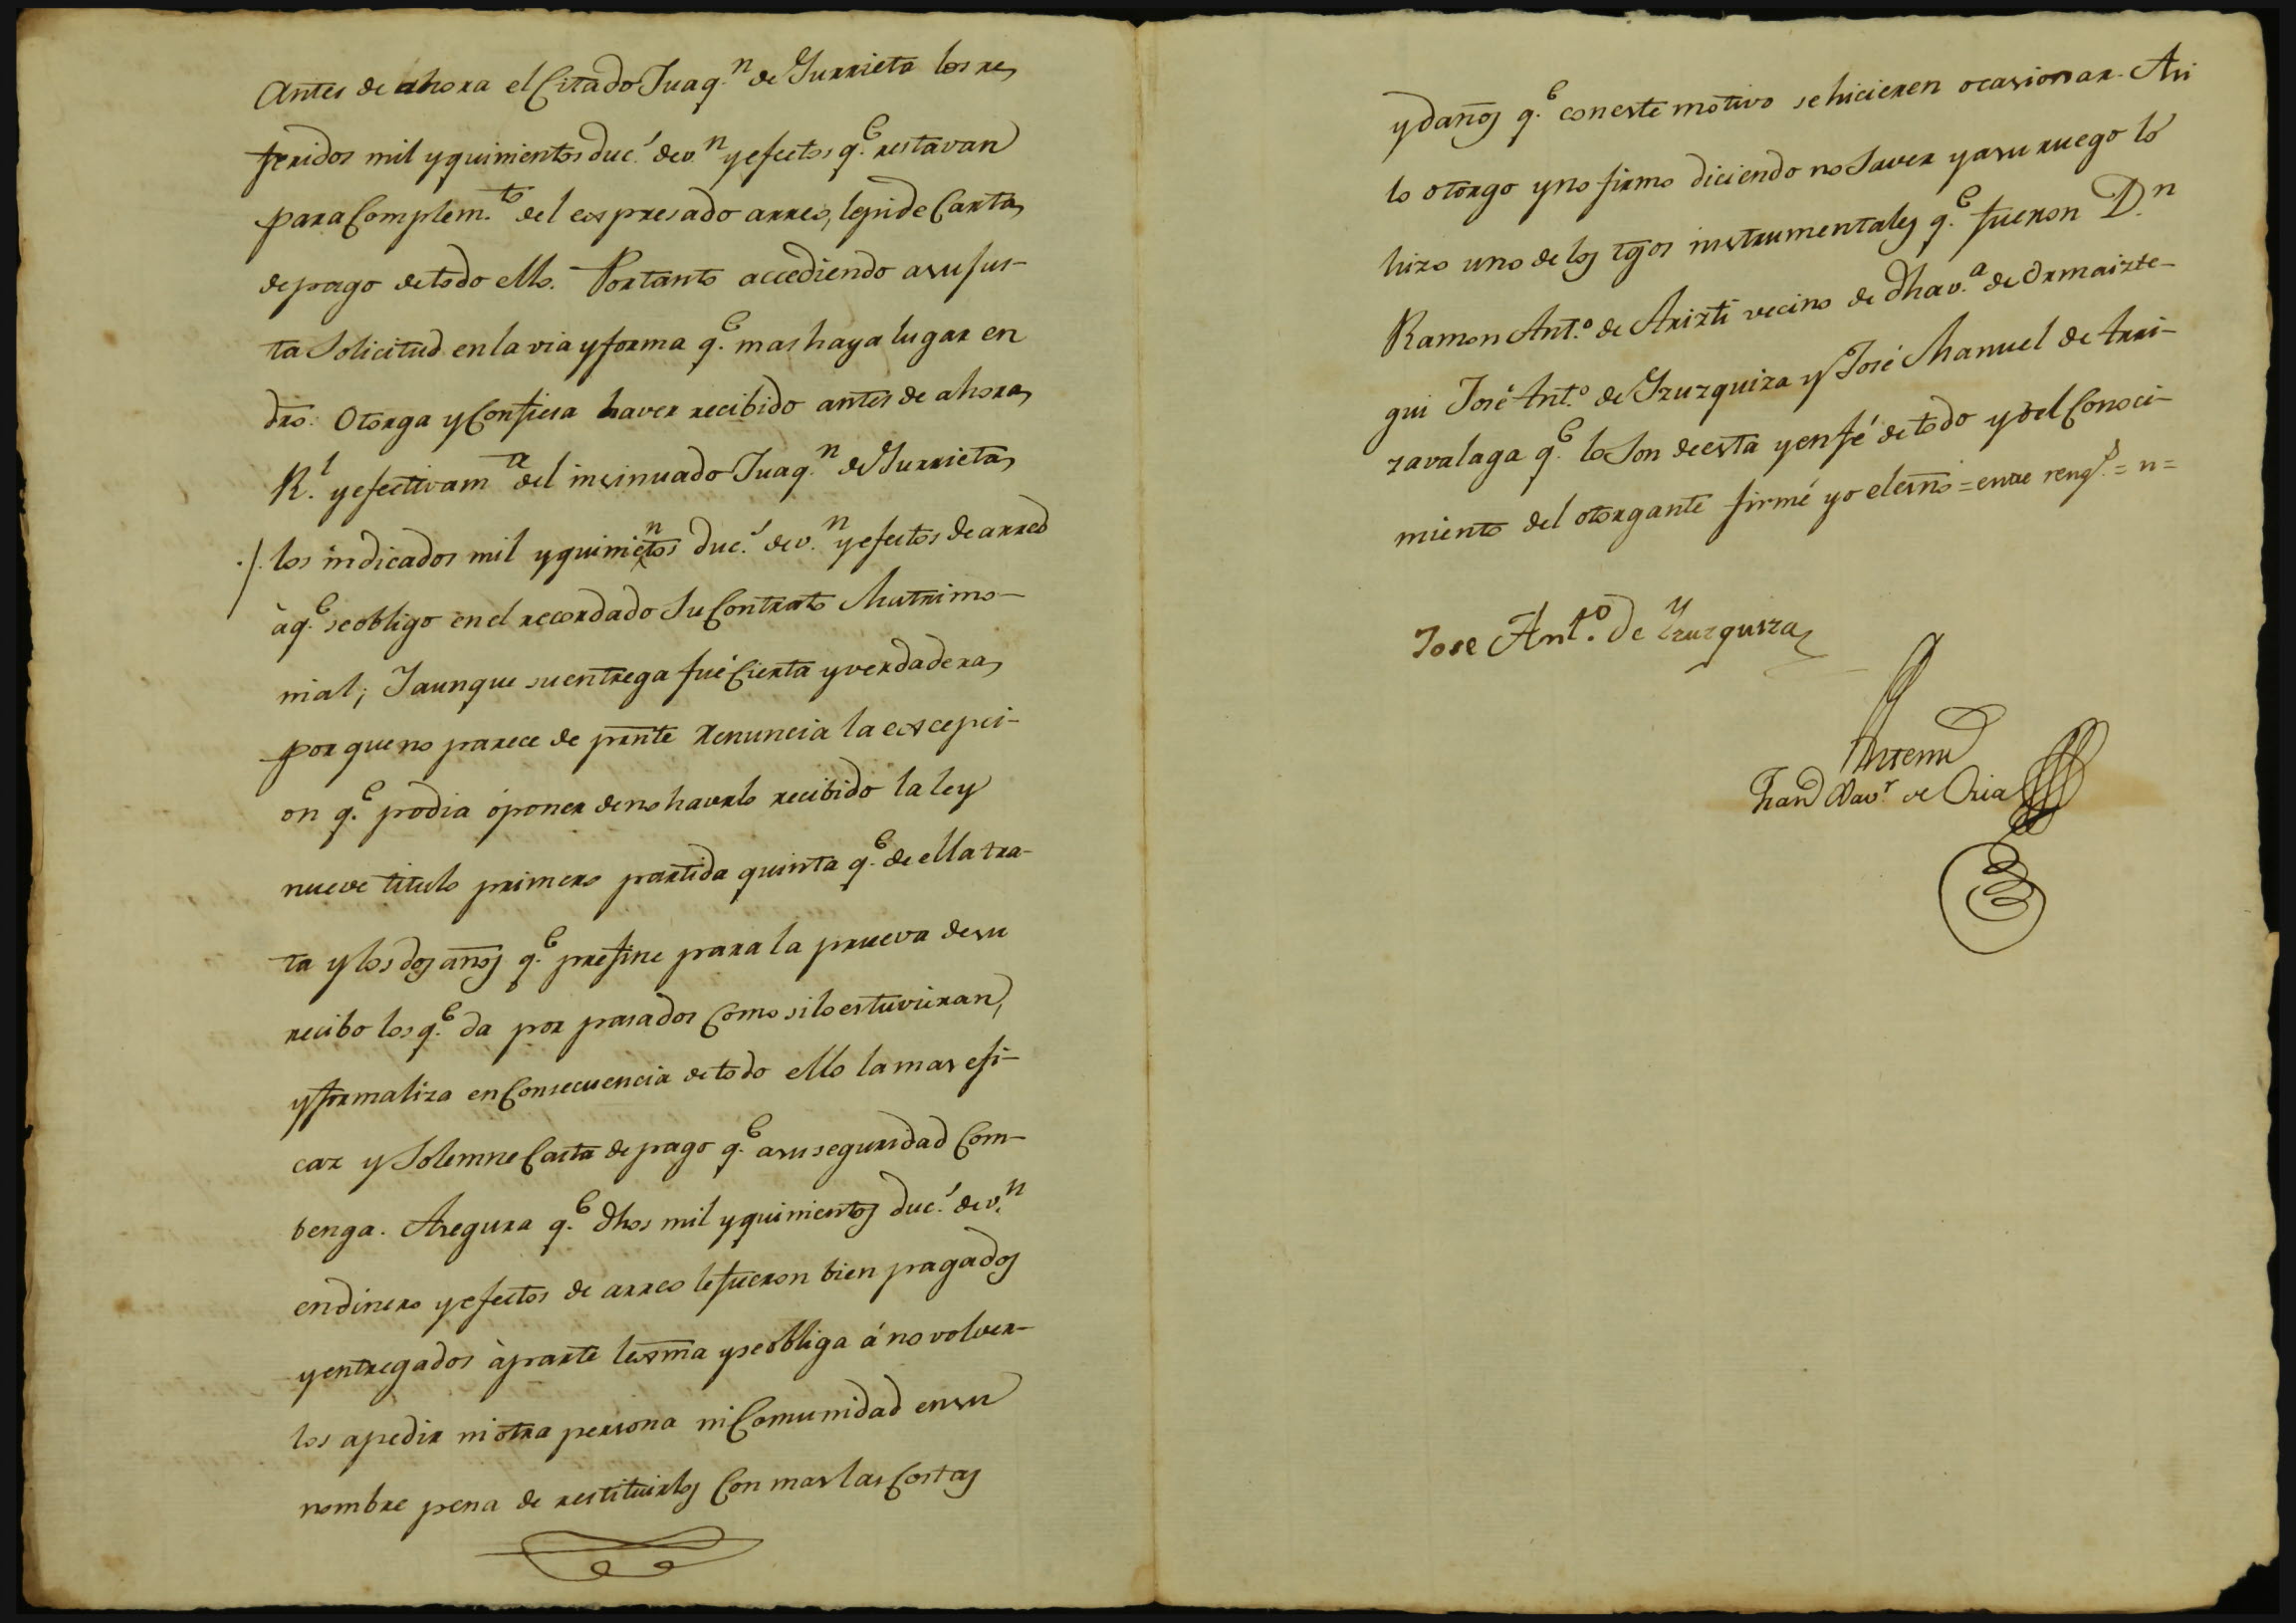 Antes de ahora el Citado Juaq.n de Yurrieta los re
feridos mil y quinientos duc.s de v.n y efectos q.e restavan
para Complem.to del espresado arreo, le pide Carta
de pago de todo ello. Portanto accediendo a su jus-
ta Solicitud en la via y forma q.e mas haya lugar en
dro: Otorga y Confiesa haver recibido antes de ahora
R.l y efectivam.te del insinuado Juaq.n de Yurrieta
./. los indicados mil y quinietos n duc.s de v.n y efectos de arreo
à q.e se obligo en el recordado Su Contrato Matrimo-
nial; Iaunque su entrega fué Cierta y verdadera
por que no parece de prnte Renuncia la escepci-
on q.e podia óponer de no haverlo recibido la ley
nueve titulo primero partida quinta q.e de ella tra-
ta y los dos años q.e prefine para la prueva de su
recibo los q.e da por pasados Como si lo estuvieran,
y formaliza en Consecuencia de todo ello la mas efi-
caz y Solemne Carta de pago q.e a su seguridad Com-
benga. Asegura q.e dhos mil y quinientos duc.s de v.n
en dinero y efectos de arreo le fueron bien pagados
y entregados à parte lexma y se obliga á no volver-
los a pedir ni otra persona ni Comunidad en su
nombre pena de restituirlos Con mas las Costas
y daños q.e con este motivo se hicieren ocasionar. Asi
lo otorgo y no firmo diciendo no Saver y a su ruego lo
hizo uno de los tgos instrumentales q.e fueron D.n
Ramon Ant.o de Arizti vecino de dha v.a de Ormaizte-
gui José Ant.o de Yzuzquiza y José Manuel de Arri-
zavalaga q.e lo Son de esta y en fé de todo y del Conoci-
miento del otorgante firmé yo el esno = entre reng.s = n =
Jose Ant.o de Yzuzquiza
Antemi
Fran.co Xav.r de Oria